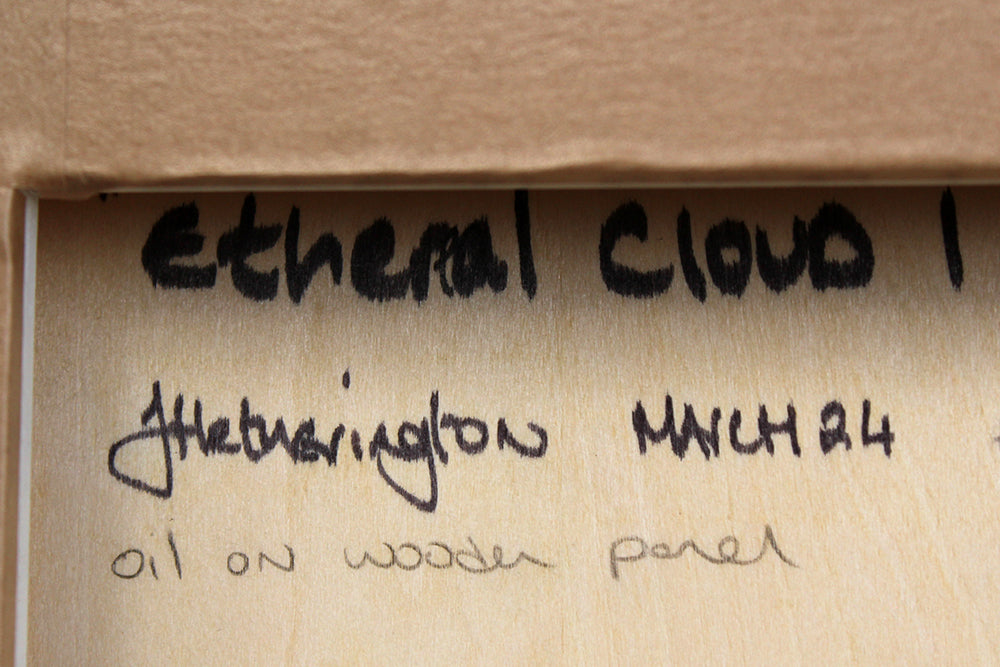 "Etheral Cloud 1
JHetherington MARCH 24
oil on wooden panel